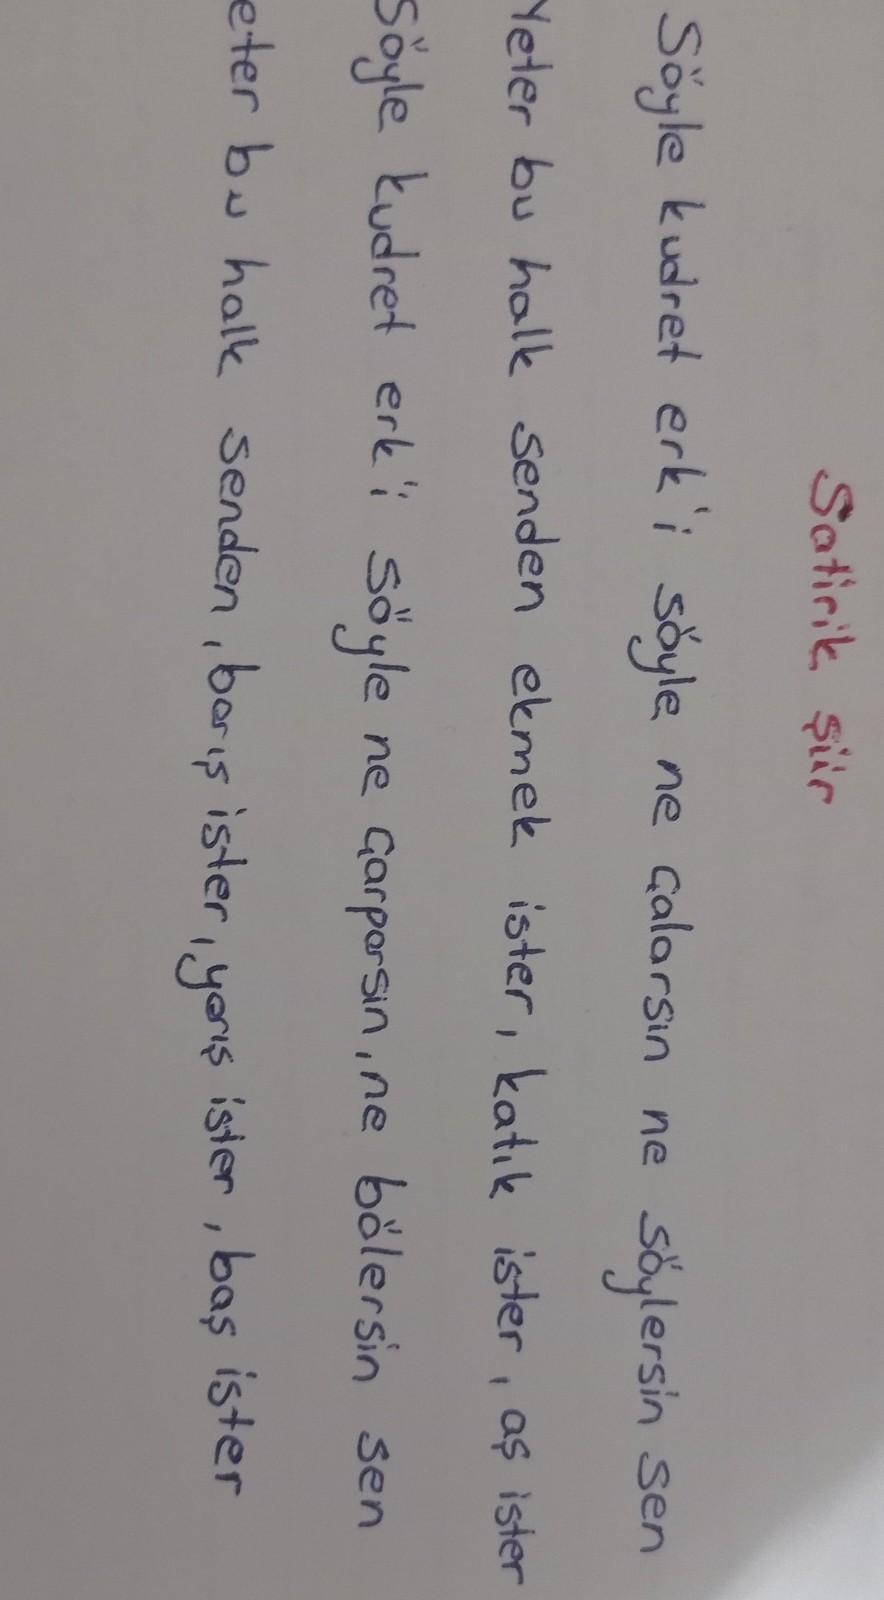 Satirik şiir
Söyle kudret erk'i söyle ne çalarsın ne söylersin sen
Yeter bu halk senden ekmek ister, katık ister, aş ister
Söyle kudret erk'i söyle ne çarparsın, ne bölersin sen
eter bu halk senden, barış ister, yarış ister, baş ister